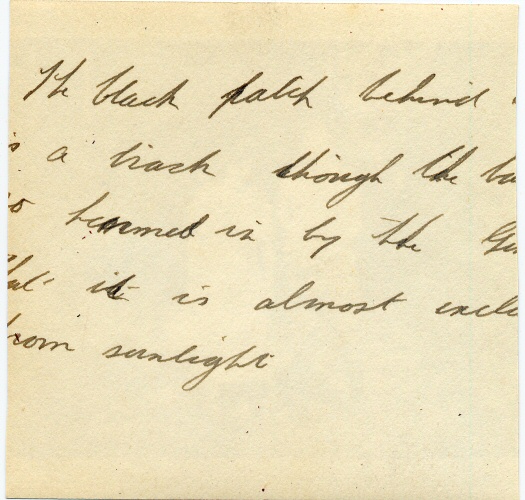 The black patch behind
is a track though the ba
so hemmed in by the Gu
that it is almost exclu
from sunlight